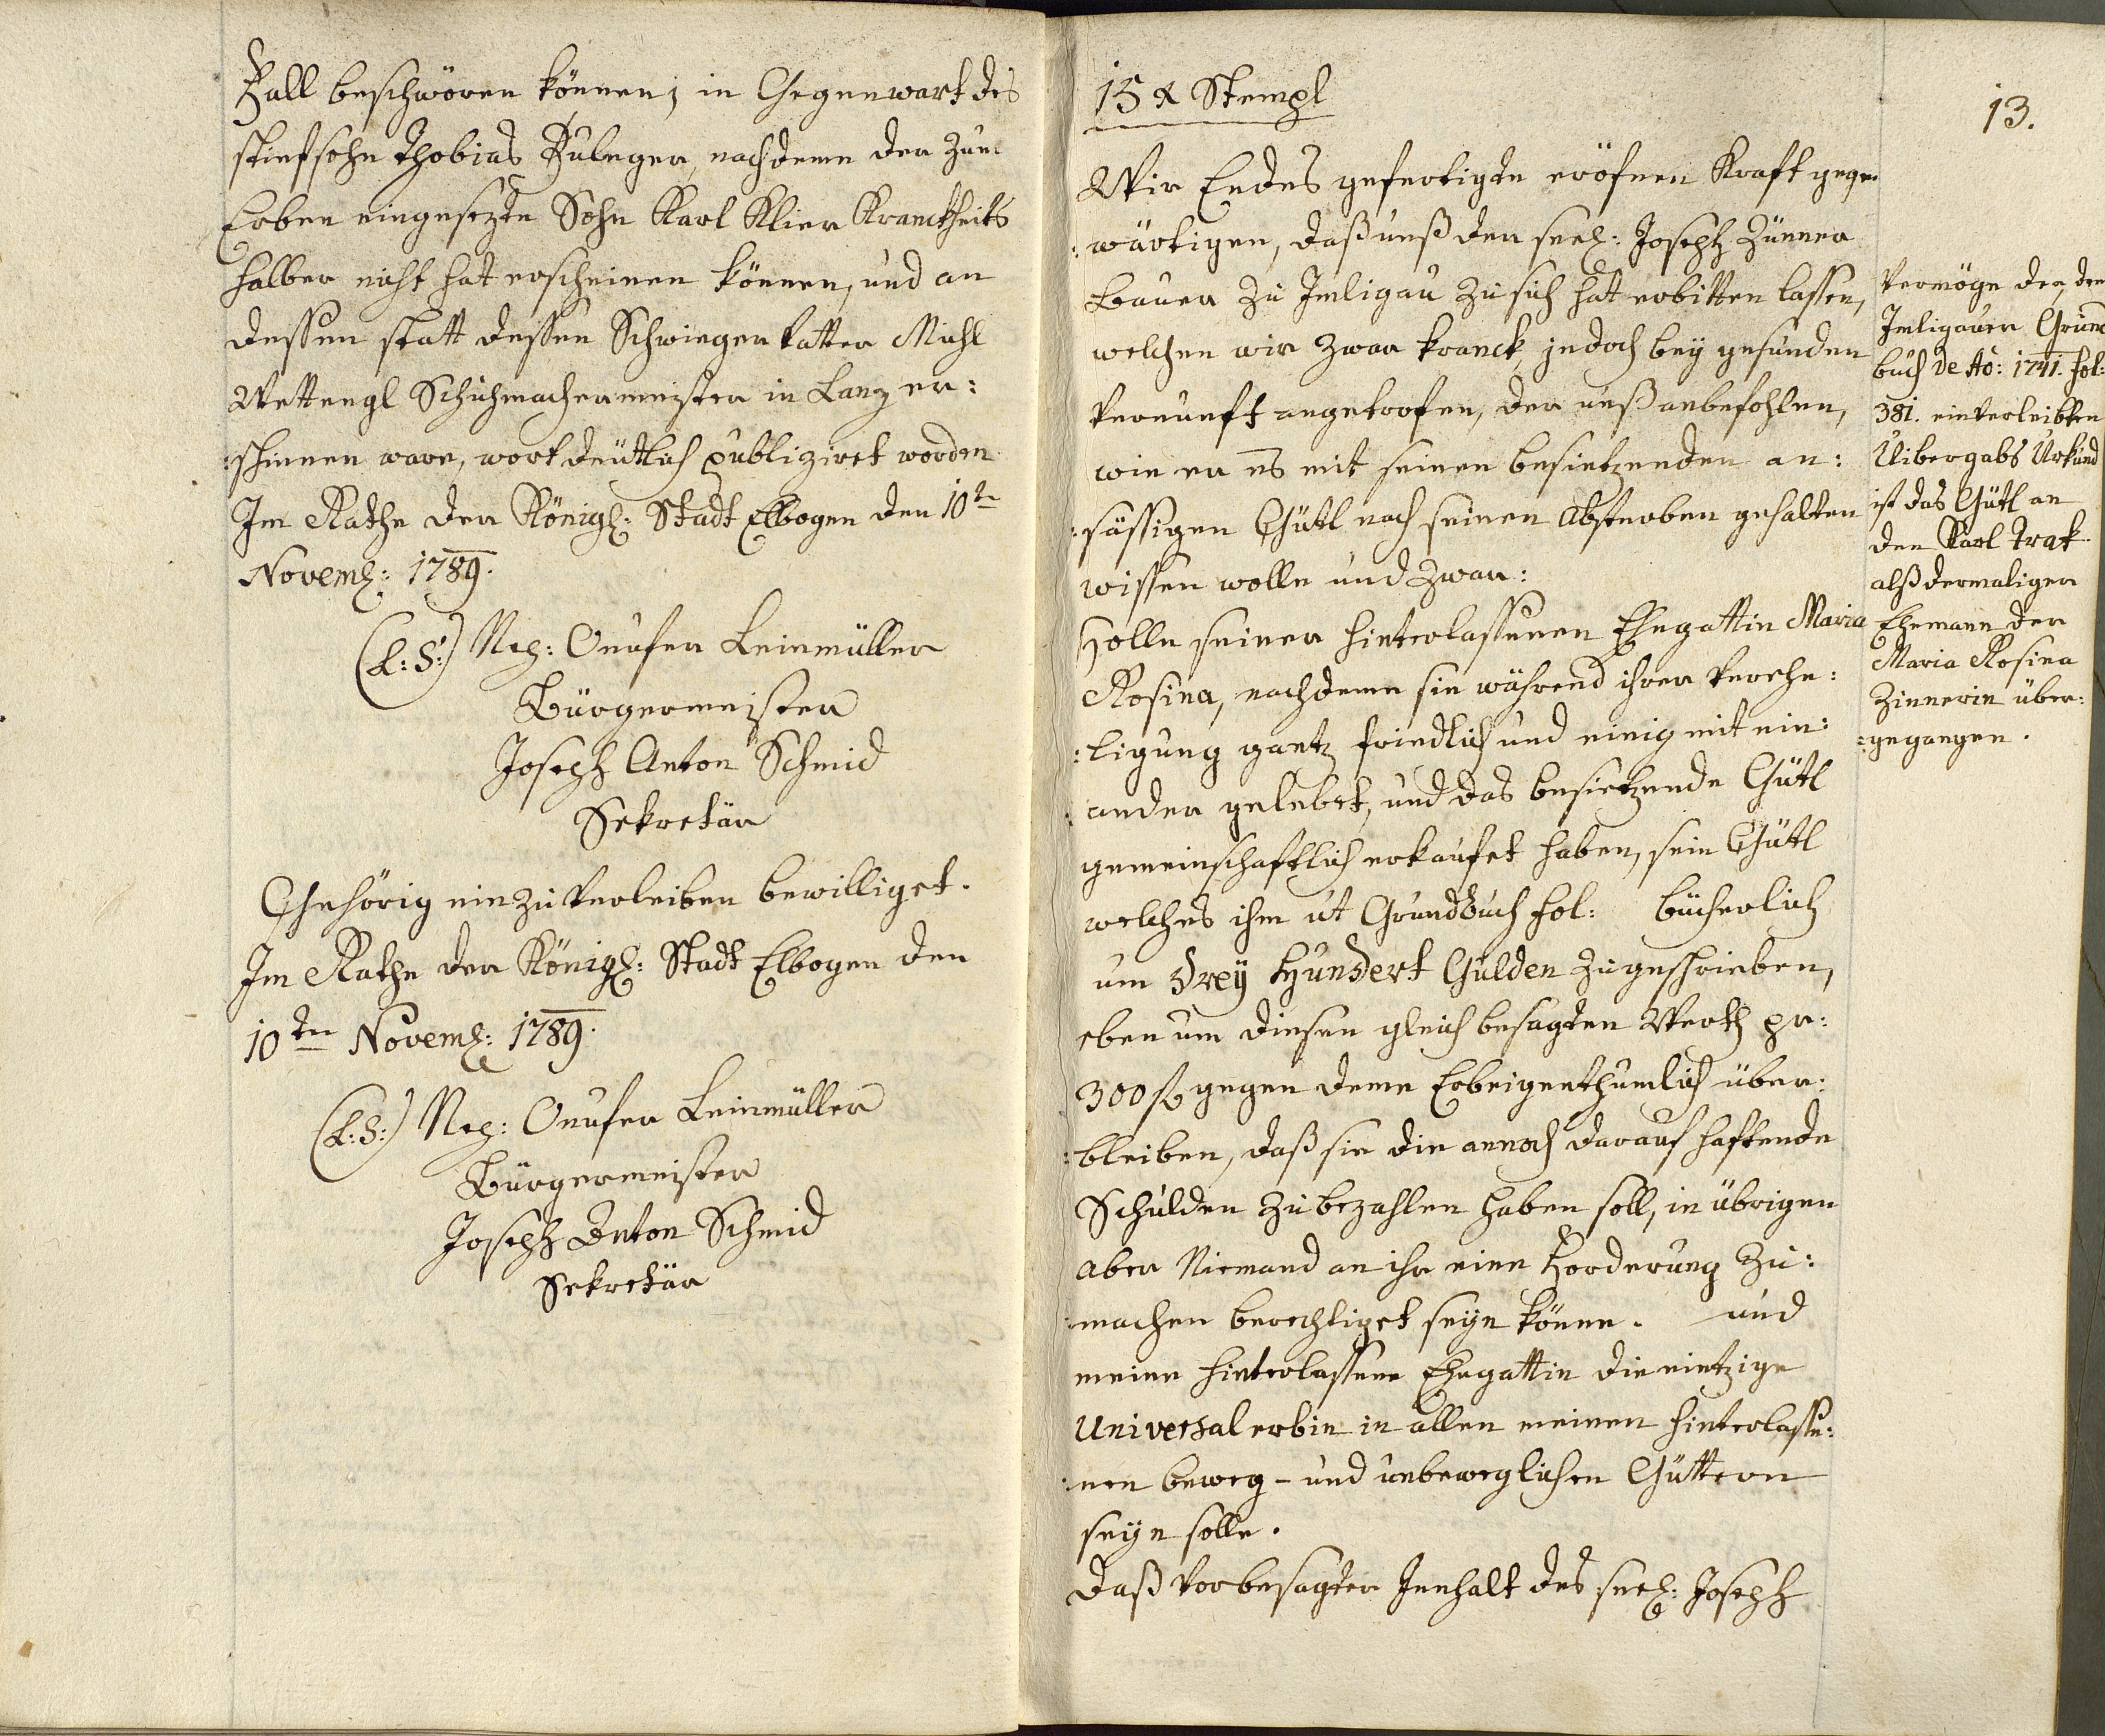 Fall beschwören können, in Gegenwart des
stiefsohn Thobias Puleger, nachdeme der zum
Erben eingesezte Sohn Karl Klier Kranckheits
halber nicht hat erscheinen können, und an
dessen statt dessen Schwieger Vatter Michl
Wettengl Schuhmachermeister in Lanz er:
:schinen ware, wort deutlich publiziret worden.
Im Rathe der Königl: Stadt Elbogen den 10te
Novemb: 1789.
(L:S:) Neg: Onufer Leinmüller
Bürgermeister
Joseph Anton Schmid
Sekretär
Gehörig ein zu Verleiben bewilliget.
Im Rathe der Königl: Stadt Elbogen den
10ten Novemb: 1789.
(L:S:) Neg: Onufer Leinmüller
Bürgermeister
Joseph Anton Schmid
Sekretär
15 x Stempl
13.
Wir Endes gefertigte eröfnen Kraft gegen
:wärtigen, daß unß der seel: Joseph Zünner
Bauer zu Imligau zu sich hat erbitten lassen,
welchen wir zwar kranck jedoch bey gesunden
Vernunft angetrofen, der unß anbefohlen,
wie er es mit seinen besietzenden an:
:sässigen Gütl nach seinen Absterben gehalten
wissen wolle und zwar:
Solle seiner hinterlassenen Ehegattin Maria
Rosina, nachdeme sie während ihrer Verehe:
:ligung gantz friedlich und einig mit ein:
:ander gelebet, und das besietzende Gütl
gemeinschaftlich erkaufet haben, sein Gütl
welches ihm ut Grundbuch fol: bücherlich
um Drey Hundert Gulden zugeschrieben,
eben um diesen gleich besagten Werth pr:
300 f gegen deme Erbeigenthumlich über:
:bleiben, daß sie die annoch darauf haftende
Schulden zu bezahlen haben soll, in übrigen
aber Niemand an ihr eine Forderung zu:
:machen berechtiget seye könne. und
meine hinterlassene Ehegattin die eintzige
Universal erbin in allen meinen hinterlasse:
:nen beweg- und unbeweglichen Güttern
seyn solle.
Daß vorbesagter Innhalt des seel: Joseph
Vermöge der, dem
Imligauer Grund
buch de Ao: 1741. fol:
381. einverleibten
Uibergabs Urkund
ist das Gütl an
den Karl Trak
alß dermaligen
Ehemann der
Maria Rosina
Zinnerin über:
:gegangen.